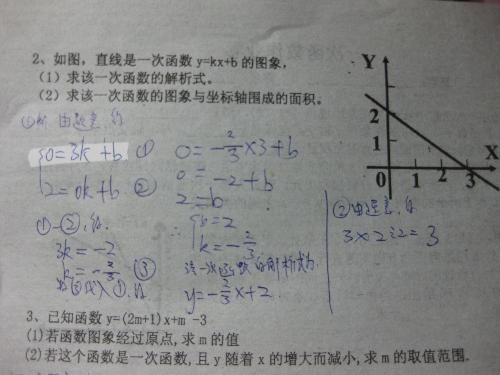 2、如图，直线是一次函数 y=kx+b 的图象，
（1）求该一次函数的解析式。
（2）求该一次函数的图象与坐标轴围成的面积。
由题意得
0=3k+b ①
2=0k+b ②
①-②,得
3k=-2
k=-2/3 ③
把③代入①,得
0=-2/3×3+b
0=-2+b
2=b
∴ b=2
k=-2/3
该一次函数的解析式为
y=-2/3x+2
②由题意,得
3×2÷2=3
Y
2
1
0 1 2 3 X
3、已知函数 y=(2m+1)x+m -3
(1)若函数图象经过原点,求 m 的值
(2)若这个函数是一次函数,且 y 随着 x 的增大而减小,求 m 的取值范围.